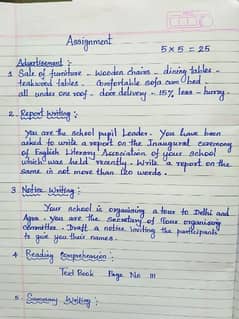 Assignment
5 × 5 = 25
Advertisement :
1. Sale of furniture - Wooden chairs - dining tables -
teakwood tables - Comfortable sofa cum bed -
all under one roof - door delivery - 15% less - hurry.
2. Report Writing :
You are the school pupil Leader. You have been
asked to write a report on the Inaugural ceremony
of English Literary Association of your school
which was held recently. Write a report on the
same in not more than 120 words.
3 Notice Writing :
Your school is organising a tour to Delhi and
Agra. You are the secretary of Tour organising
committee. Draft a notice inviting the participants
to give you their names.
4 Reading Comprehension :
Text Book Page No 111
5 Summary Writing :